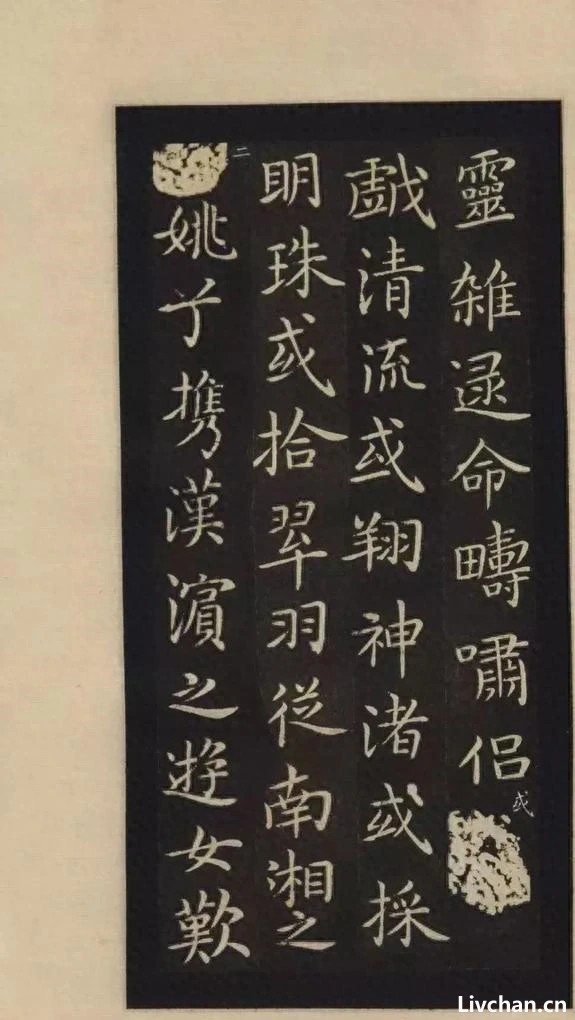 靈雑遝命疇嘯侶或
戯清流或翔神渚或採
明珠或拾翆羽従南湘之
二姚兮携漢濱之遊女歎
Livchan.cn